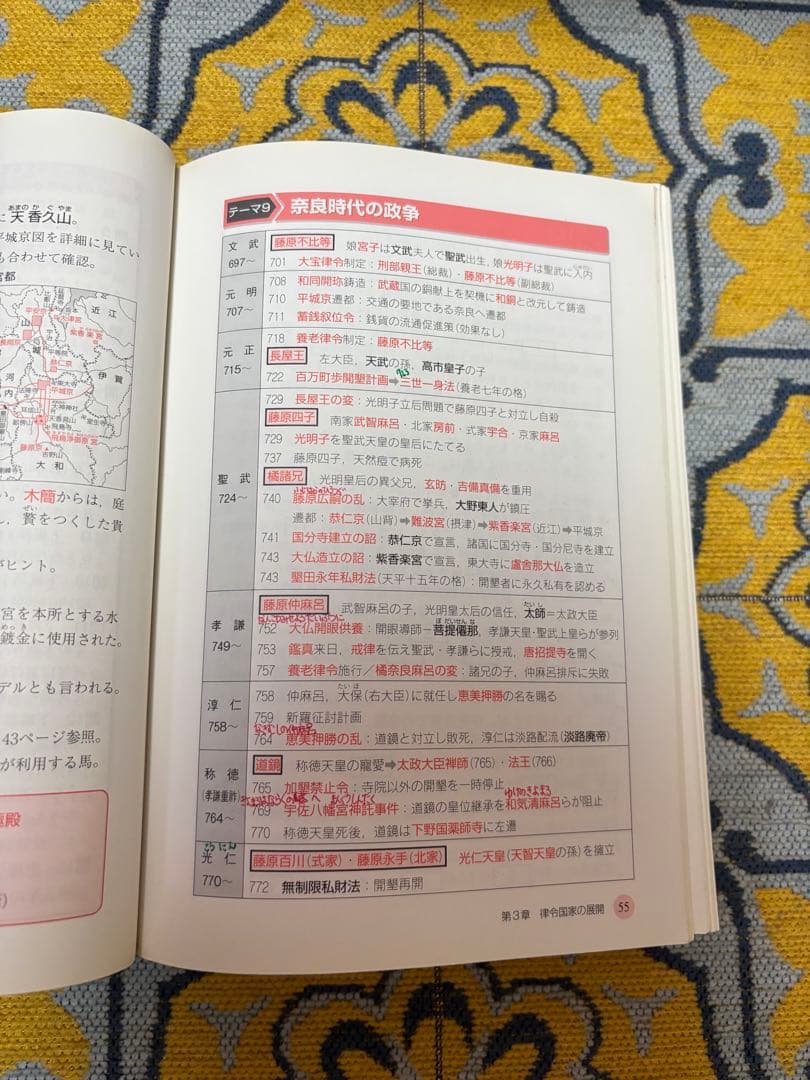 あまの か ぐ やま
に天香久山。
平城京図を詳細に見てい
も合わせて確認。
宮都
近江
平安京
長岡京
大津宮
紫香楽宮
山
城
恭仁京
伊賀
河
内
平城京
東大寺
法隆寺
耳成山
大神神社
天香具山
室生寺
飛鳥寺
飛鳥浄御原宮
藤原京
吉野山
大和
い。木簡からは，庭
ぜい
し，贅をつくした貴
がヒント。
宮を本所とする水
めっき
鍍金に使用された。
デルとも言われる。
43ページ参照。
が利用する馬。
極殿
テーマ9 奈良時代の政争
文武
697〜
藤原不比等 娘宮子は文武夫人で聖武出生，娘光明子は聖武に入内
701 大宝律令制定：刑部親王（総裁）・藤原不比等（副総裁）
元明
707〜
708 和同開珎鋳造：武蔵国の銅献上を契機に和銅と改元して鋳造
710 平城京遷都：交通の要地である奈良へ遷都
711 蓄銭叙位令：銭貨の流通促進策（効果なし）
元正
715〜
718 養老律令制定：藤原不比等
長屋王 左大臣，天武の孫，高市皇子の子
722 百万町歩開墾計画➡三世一身法（養老七年の格）
聖武
724〜
729 長屋王の変：光明子立后問題で藤原四子と対立し自殺
藤原四子 南家武智麻呂・北家房前・式家宇合・京家麻呂
729 光明子を聖武天皇の皇后にたてる
737 藤原四子，天然痘で病死
橘諸兄 光明皇后の異父兄，玄昉・吉備真備を重用
740 藤原広嗣の乱：大宰府で挙兵，大野東人が鎮圧
遷都：恭仁京（山背）➡難波宮（摂津）➡紫香楽宮（近江）➡平城京
741 国分寺建立の詔：恭仁京で宣言，諸国に国分寺・国分尼寺を建立
743 大仏造立の詔：紫香楽宮で宣言，東大寺に盧舎那大仏を造立
743 墾田永年私財法（天平十五年の格）：開墾者に永久私有を認める
孝謙
749〜
藤原仲麻呂 武智麻呂の子，光明皇太后の信任，太師＝太政大臣
たいし
ぼ だいせん な
752 大仏開眼供養：開眼導師－菩提僊那，孝謙天皇・聖武上皇らが参列
753 鑑真来日，戒律を伝え聖武・孝謙らに授戒，唐招提寺を開く
757 養老律令施行／橘奈良麻呂の変：諸兄の子，仲麻呂排斥に失敗
淳仁
758〜
たい ほ
758 仲麻呂，大保（右大臣）に就任し恵美押勝の名を賜る
759 新羅征討計画
764 恵美押勝の乱：道鏡と対立し敗死，淳仁は淡路配流（淡路廃帝）
称徳
（孝謙重祚）
764〜
道鏡 称徳天皇の寵愛➡太政大臣禅師（765）・法王（766）
765 加墾禁止令：寺院以外の開墾を一時停止
769 宇佐八幡宮神託事件：道鏡の皇位継承を和気清麻呂らが阻止
770 称徳天皇死後，道鏡は下野国薬師寺に左遷
光仁
770〜
藤原百川（式家）・藤原永手（北家） 光仁天皇（天智天皇の孫）を擁立
772 無制限私財法：開墾再開
第3章 律令国家の展開 55